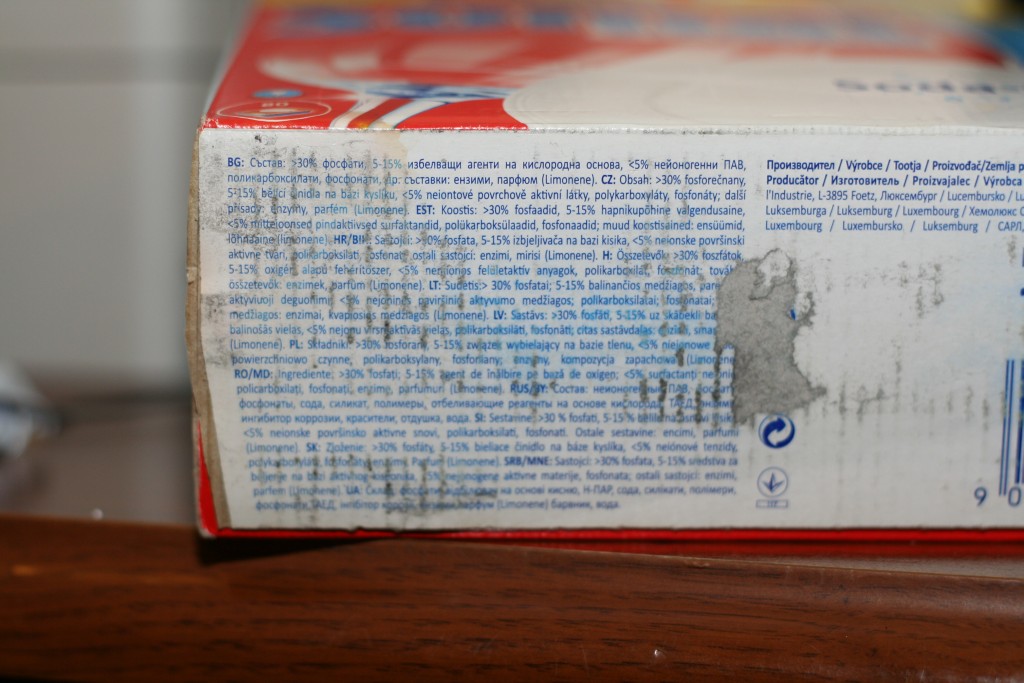 BG: Състав: >30% фосфати, 5-15% избелващи агенти на кислородна основа, <5% нейоногенни ПАВ,
поликарбоксилати, фосфонати, др. съставки: ензими, парфюм (Limonene). CZ: Obsah: >30% fosforečnany,
5-15% bělící činidla na bázi kyslíku, <5% neiontové povrchově aktivní látky, polykarboxyláty, fosfonáty; další
přísady: enzymy, parfém (Limonene). EST: Koostis: >30% fosfaadid, 5-15% hapnikupõhine valgendusaine,
<5% mitteioonsed pindaktiivsed surfaktandid, polükarboksülaadid, fosfonaadid; muud koostisained: ensüümid,
lõhnaaine (limonene). HR/BIH: Sastojci: >30% fosfata, 5-15% izbjeljivača na bazi kisika, <5% neionske površinski
aktivne tvari, polikarboksilati, fosfonati ostali sastojci: enzimi, mirisi (Limonene). H: Összetevők: >30% foszfátok,
5-15% oxigén alapú fehérítőszer, <5% nemionos felületaktív anyagok, polikarboxilát, foszfonát; további
összetevők: enzimek, parfüm (Limonene). LT: Sudėtis:> 30% fosfatai; 5-15% balinančios medžiagos,
aktyviuoji deguonimi <5% nejoninės paviršiniai aktyvumo medžiagos; polikarboksilatai; fosfonatai;
medžiagos: enzimai, kvapiosios medžiagos (Limonene). LV: Sastāvs: >30% fosfāti, 5-15% uz skābekli
balinošās vielas, <5% nejonu virsmaktīvās vielas, polikarboksilāti, fosfonāti; citas sastāvdaļas:
(Limonene). PL: Składniki: >30% fosforany, 5-15% związek wybielający na bazie tlenu, <5% niejonowe
powierzchniowo czynne, polikarboksylany, fosforliany; enzymy, kompozycja zapachowa (Limonene)
RO/MD: Ingrediente: >30% fosfați; 5-15% agent de înălbire pe bază de oxigen; <5% surfactanți
policarboxilați, fosfonați, enzime, parfumuri (Limonene). RUS/KY: Состав: неионогенные ПАВ,
фосфонаты, сода, силикат, полимеры, отбеливающие реагенты на основе кислорода, ТАЕД
ингибитор коррозии, красители, отдушка, вода. SI: Sestavine: >30 % fosfati, 5-15 %
<5% neionske površinsko aktivne snovi, polikarboksilati, fosfonati. Ostale sestavine: encimi, parfumi
(Limonene). SK: Zloženie: >30% fosfáty, 5-15% bieliace činidlo na báze kyslíka, <5% neiónové tenzidy,
polykarboxyláty, fosfonáty, enzýmy, (Limonene). SRB/MNE: Sastojci: >30% fosfata, 5-15% sredstva za
beljenje na bazi aktivnog kiseonika, aktivne materije, fosfonata; ostali sastojci: enzimi,
parfem (Limonene). UA: Склад: на основі кисню, Н-ПАР, сода, силікати, полімери,
фосфонати, ТАЕД, інгібітор корозії, (Limonene) барвник, вода.
Производител / Výrobce / Tootja / Proizvođač/Zemlja
Producător / Изготовитель / Proizvajalec / Výrobca
l'Industrie, L-3895 Foetz, Люксембург / Lucembursko /
Luksemburga / Luksemburg / Luxembourg / Хемолюкс
Luxembourg / Luxembursko / Luksemburg / САРЛ,
9 0